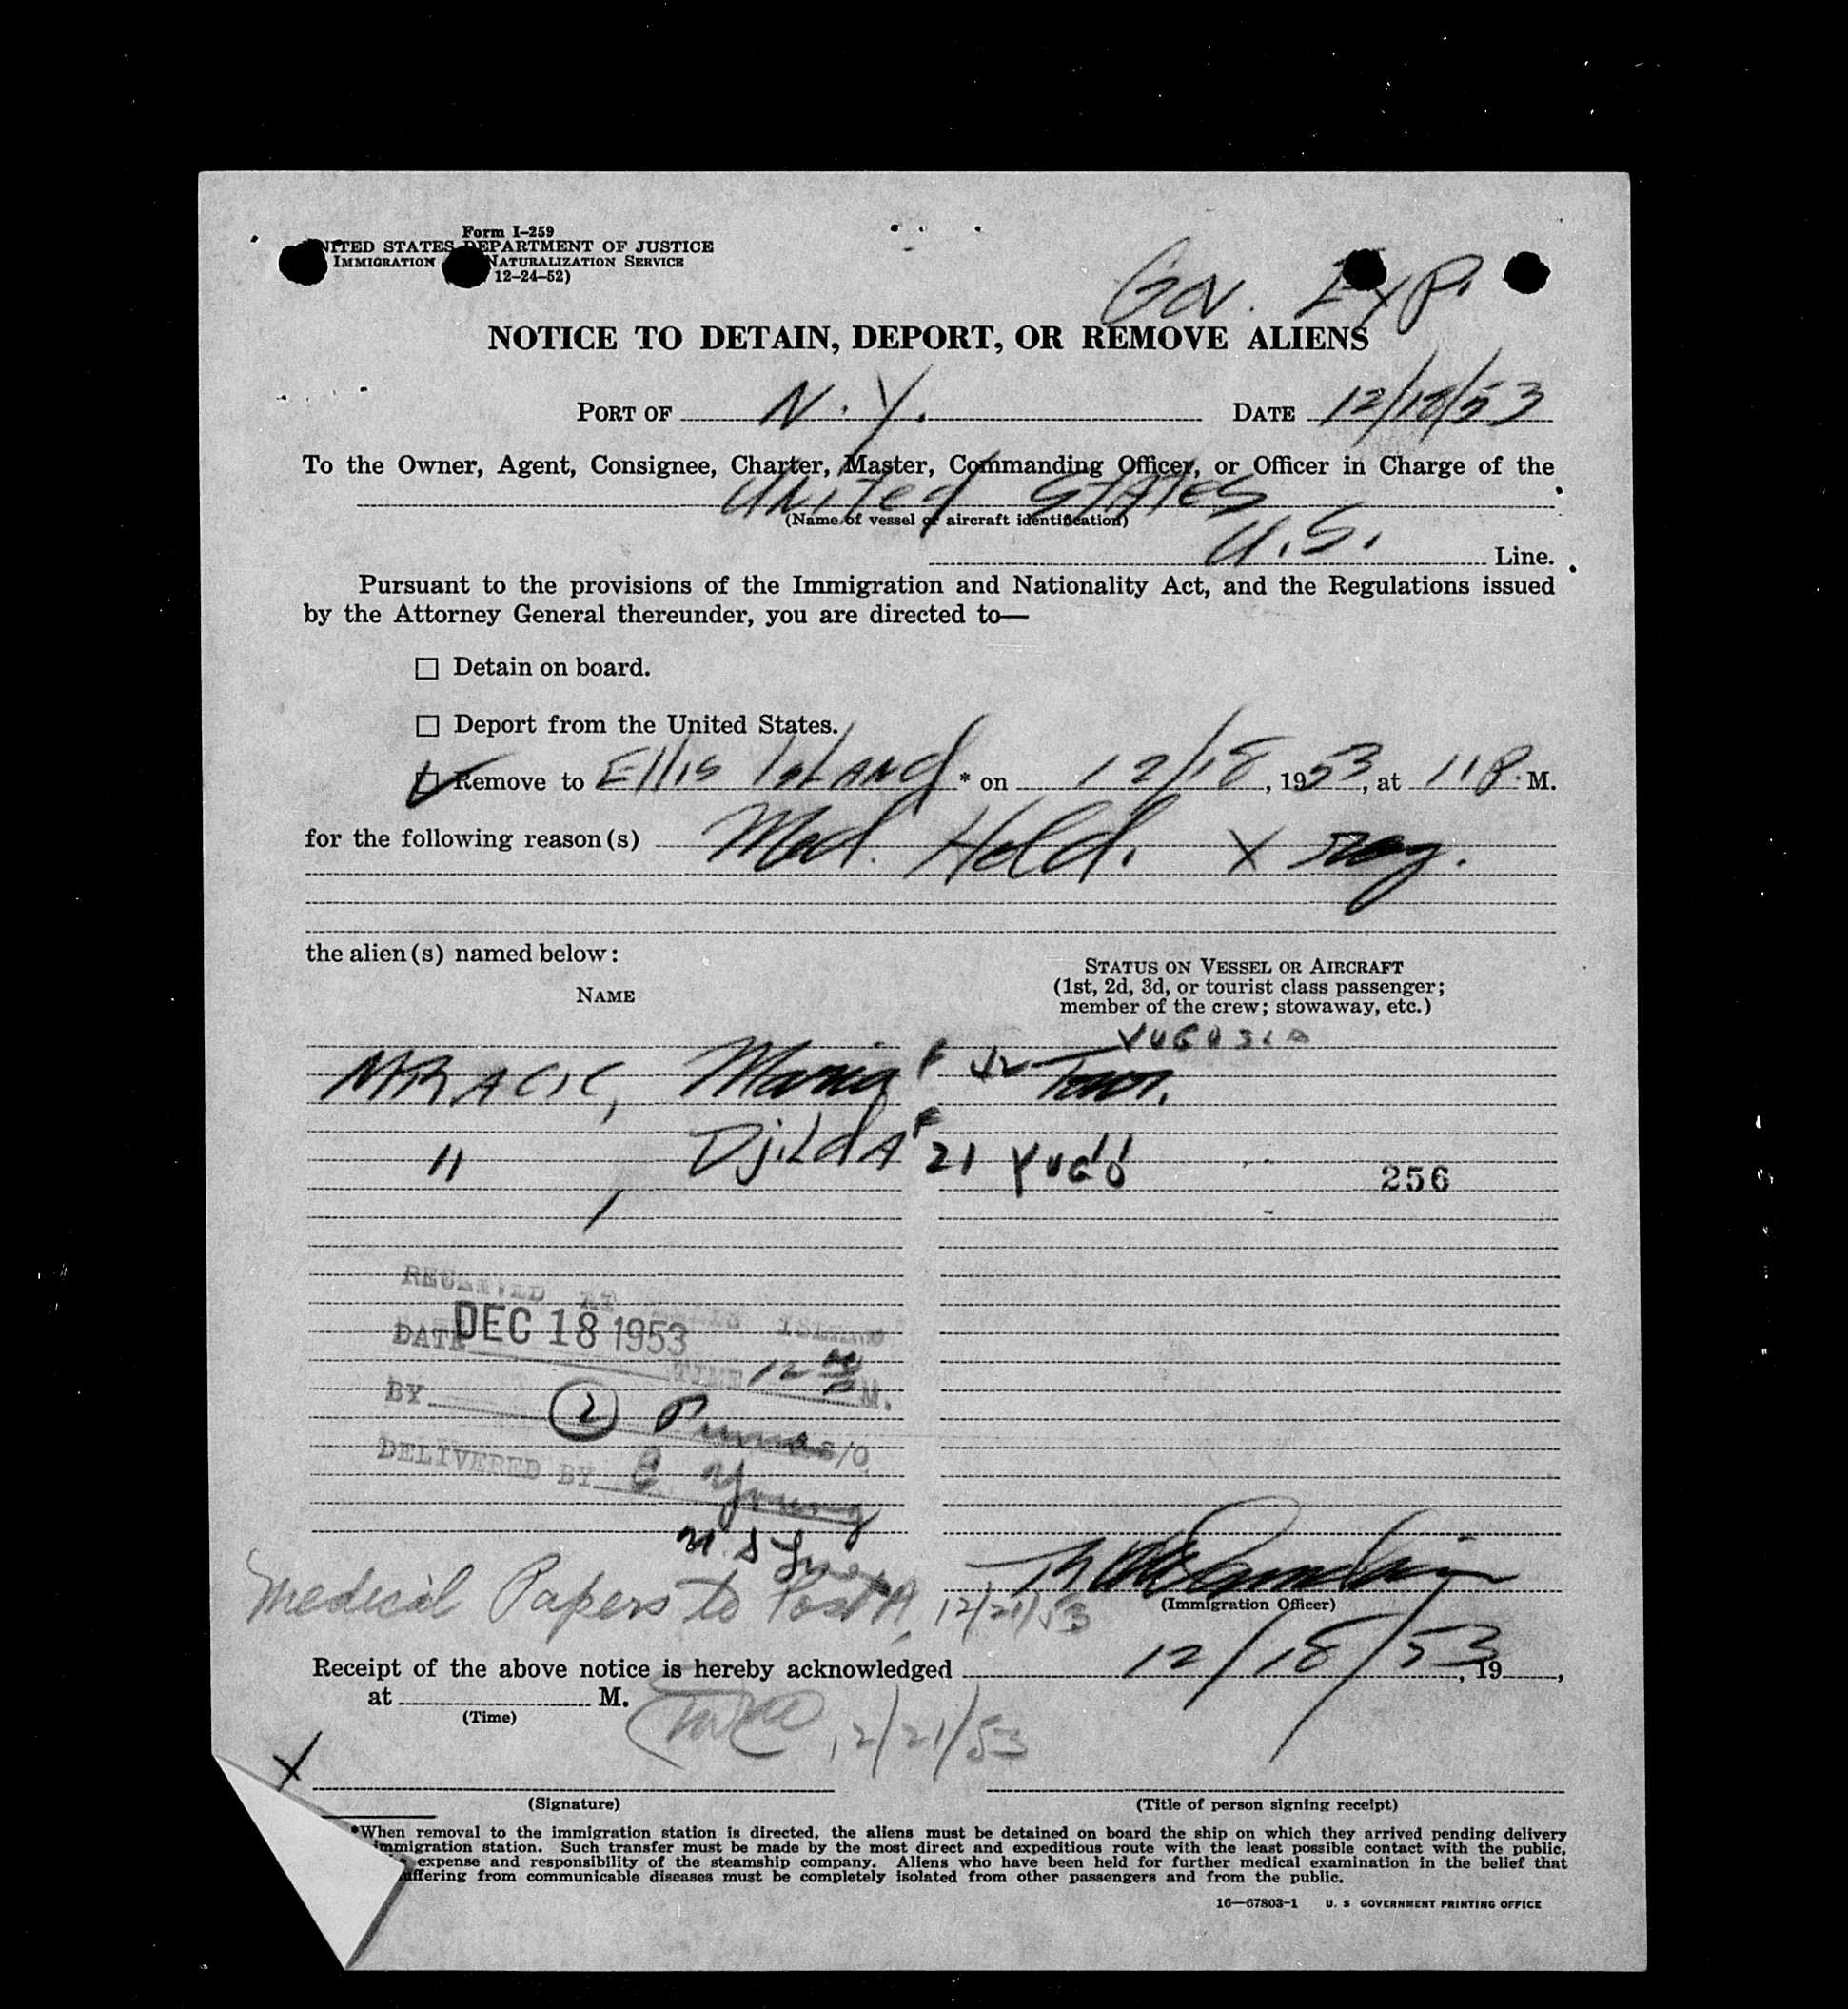 Form I-259
UNITED STATES DEPARTMENT OF JUSTICE
IMMIGRATION NATURALIZATION SERVICE
12-24-52)
Gov. Exp.
NOTICE TO DETAIN, DEPORT, OR REMOVE ALIENS
PORT OF N.Y. DATE 12/18/53
To the Owner, Agent, Consignee, Charter, Master, Commanding Officer, or Officer in Charge of the
United States
(Name of vessel or aircraft identification)
U.S. Line.
Pursuant to the provisions of the Immigration and Nationality Act, and the Regulations issued
by the Attorney General thereunder, you are directed to—
☐ Detain on board.
☐ Deport from the United States.
Remove to Ellis Island * on 12/18, 1953, at 11 P. M.
for the following reason(s) Med. Held. X ray.
the alien(s) named below:
NAME
STATUS ON VESSEL OR AIRCRAFT
(1st, 2d, 3d, or tourist class passenger;
member of the crew; stowaway, etc.)
MRACIC, Maria F
" Djilda F 21 Yugo
256
RECEIVED AT ELLIS ISLAND
DATE DEC 18 1953
TIME 12 M.
BY 2
DELIVERED BY Young
Medical Papers to Post A, 12/21/53
(Immigration Officer)
Receipt of the above notice is hereby acknowledged 12/18/53, 19 ,
at M.
(Time)
12/21/53
X
(Signature)
(Title of person signing receipt)
*When removal to the immigration station is directed, the aliens must be detained on board the ship on which they arrived pending delivery
immigration station. Such transfer must be made by the most direct and expeditious route with the least possible contact with the public,
expense and responsibility of the steamship company. Aliens who have been held for further medical examination in the belief that
suffering from communicable diseases must be completely isolated from other passengers and from the public.
16—67803-1 U. S GOVERNMENT PRINTING OFFICE